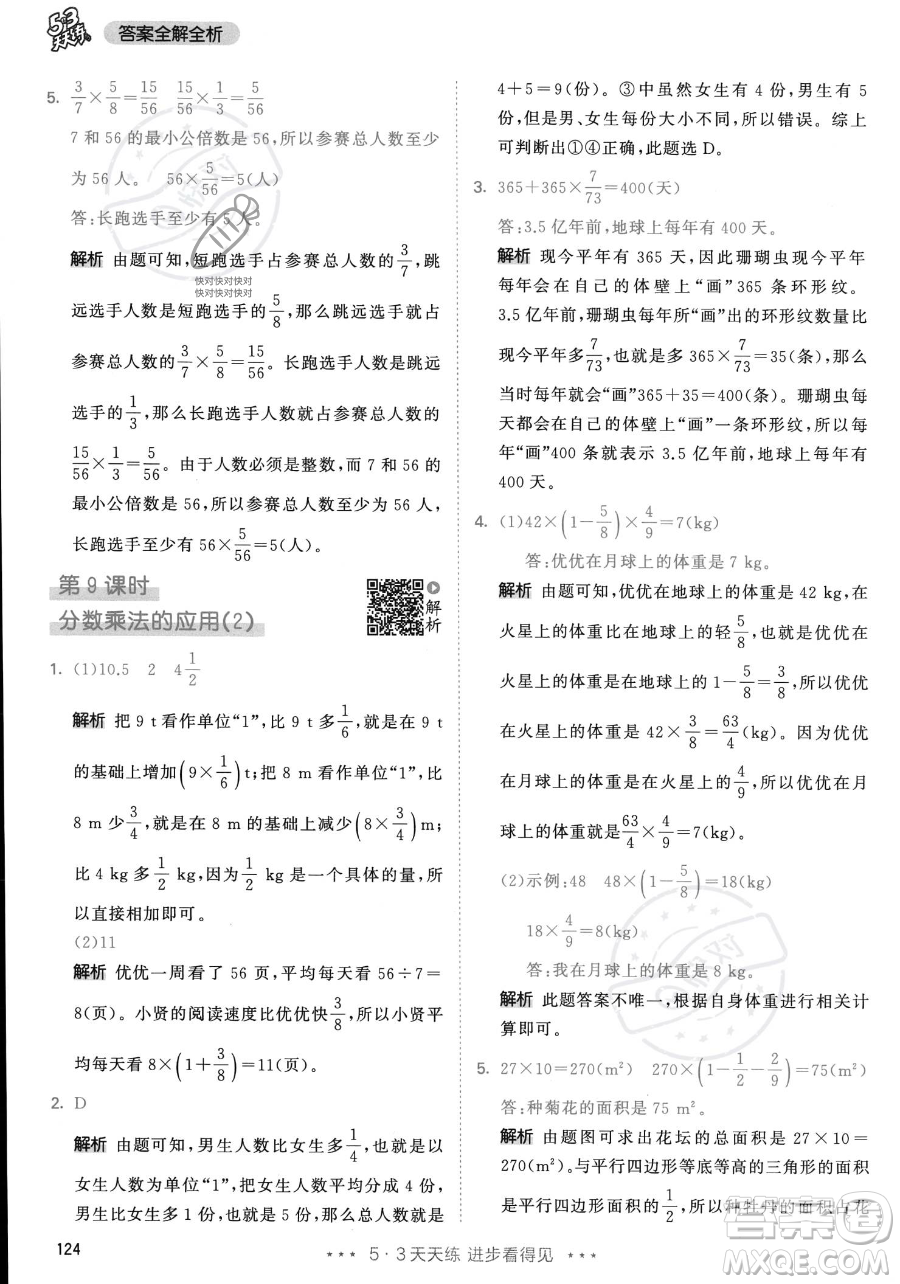 5·3天天练
答案全解全析
5. 3/7×5/8=15/56 15/56×1/3=5/56
7 和 56 的最小公倍数是 56,所以参赛总人数至少
为 56 人。 56×5/56=5(人)
答:长跑选手至少有 5 人。
解析 由题可知,短跑选手占参赛总人数的3/7,跳
快对快对快对
快对快对快对
远选手人数是短跑选手的5/8,那么跳远选手就占
参赛总人数的3/7×5/8=15/56,长跑选手人数是跳远
选手的1/3,那么长跑选手人数就占参赛总人数的
15/56×1/3=5/56。由于人数必须是整数,而 7 和 56 的
最小公倍数是 56,所以参赛总人数至少为 56 人,
长跑选手至少有 56×5/56=5(人)。
第 9 课时
分数乘法的应用(2)
解析
1. (1)10.5 2 4 1/2
解析 把 9 t看作单位“1”,比 9 t 多1/6,就是在 9 t
的基础上增加(9×1/6)t;把 8 m 看作单位“1”,比
8 m 少3/4,就是在 8 m 的基础上减少(8×3/4)m;
比 4 kg 多1/2 kg,就是在 4 kg 的基础上多1/2 kg,所
以直接相加即可。
(2)11
解析 优优一周看了 56 页,平均每天看 56÷7=
8(页)。小贤的阅读速度比优优快3/8,所以小贤平
均每天看 8×(1+3/8)=11(页)。
2. D
解析 由题可知,男生人数比女生多1/4,就是以
女生人数为单位“1”,把女生人数平均分成 4 份,
男生人数比女生多 1 份,那么男生人数就是
4+5=9(份)。③中虽然女生有 4 份,男生有 5
份,但是男、女生每份大小不同,所以错误。综上
可判断出①④正确,此题选 D。
3. 365+365×7/73=400(天)
答:3.5 亿年前,地球上每年有 400 天。
解析 现今平年有 365 天,说明珊瑚虫现今平年
每年在自己的体壁上“画”365 条环形纹。
3.5 亿年前,珊瑚虫每年所“画”出的环形纹数量比
现今平年多7/73,所以要多 365×7/73=35(条),那么
当时每年就会“画”365+35=400(条)。珊瑚虫每
天都会在自己的体壁上“画”一条环形纹,所以每
年“画”400 条就表示 3.5 亿年前,地球上每年有
400 天。
4. (1)42×(1-5/8)×4/9=7(kg)
答:优优在月球上的体重是 7 kg。
解析 由题可知,优优在地球上的体重是 42 kg,在
火星上的体重比在地球上的轻5/8,也就是优优在
火星上的体重是在地球上的 1-5/8=3/8,所以优优
在火星上的体重是 42×3/8=63/4(kg)。又因为优优
在月球上的体重是在火星上的4/9,所以优优在月
球上的体重就是63/4×4/9=7(kg)。
(2)示例:48 48×(1-5/8)=18(kg)
18×4/9=8(kg)
答:我在月球上的体重是 8 kg。
解析 此题答案不唯一,根据自身体重进行相关计
算即可。
5. 27×10=270(m²) 270×(1-1/2-2/9)=75(m²)
答:种菊花的面积是 75 m²。
解析 由题图可求出花坛的总面积是 27×10=
270(m²),与平行四边形等底等高的三角形的面积
是平行四边形面积的1/2,所以种牡丹的面积占花
124
5·3天天练 进步看得见